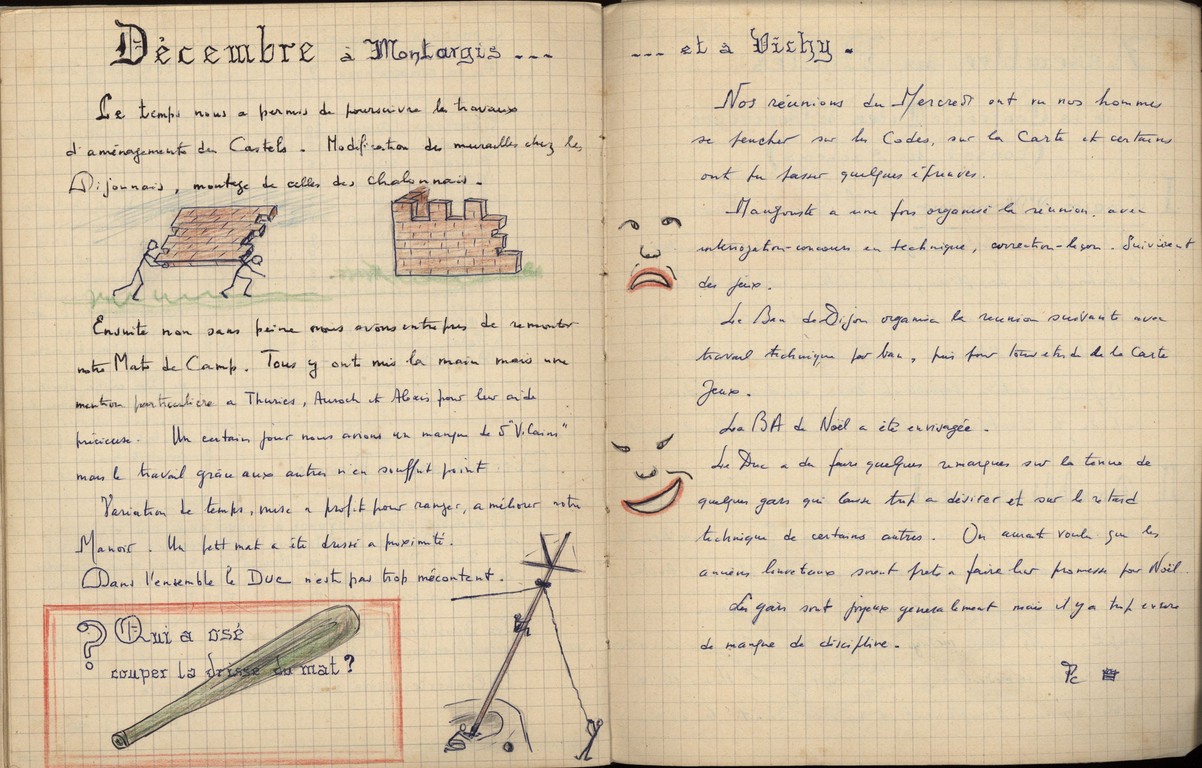 Décembre à Montargis ...
Le temps nous a permis de poursuivre les travaux
d'aménagements des Castels. Modification des murailles chez les
Dijonnais, montage de celles des chalonnais.
Ensuite non sans peine nous avons entrepris de remonter
notre Mats de Camp. Tous y ont mis la main mais une
mention particulière a Thuries, Auroch et Alexis pour leur aide
précieuse. Un certain jour nous avions un manque de 5 "Vilains"
mais le travail grâce aux autres n'en souffrit point
Variation de temps, mise a profit pour ranger, améliorer notre
Manoir. Un petit mat a été dressé a proximité.
Dans l'ensemble le Duc n'est pas trop mécontent.
? Qui a osé
couper la drisse du mat ?
... et a Vichy.
Nos réunions du Mercredi ont vu nos hommes
se pencher sur les Codes, sur la Carte et certains
ont pu passer quelques épreuves.
Mangouste a une fois organisé la réunion, avec
interrogation-concours en technique, correction-leçon. Suivirent
des jeux.
Le Ban de Dijon organisa la reunion suivante avec
travail technique par ban, puis pour tous etude de la Carte
Jeux.
La BA de Noël a été envisagée.
Le Duc a du faire quelques remarques sur la tenue de
quelques gars qui laisse trop a désirer et sur le retard
technique de certains autres. On aurait voulu que les
anciens louveteaux soient prets a faire leur promesse par Noël.
Les gars sont joyeux generalement mais il y a trop encore
de manque de discipline.